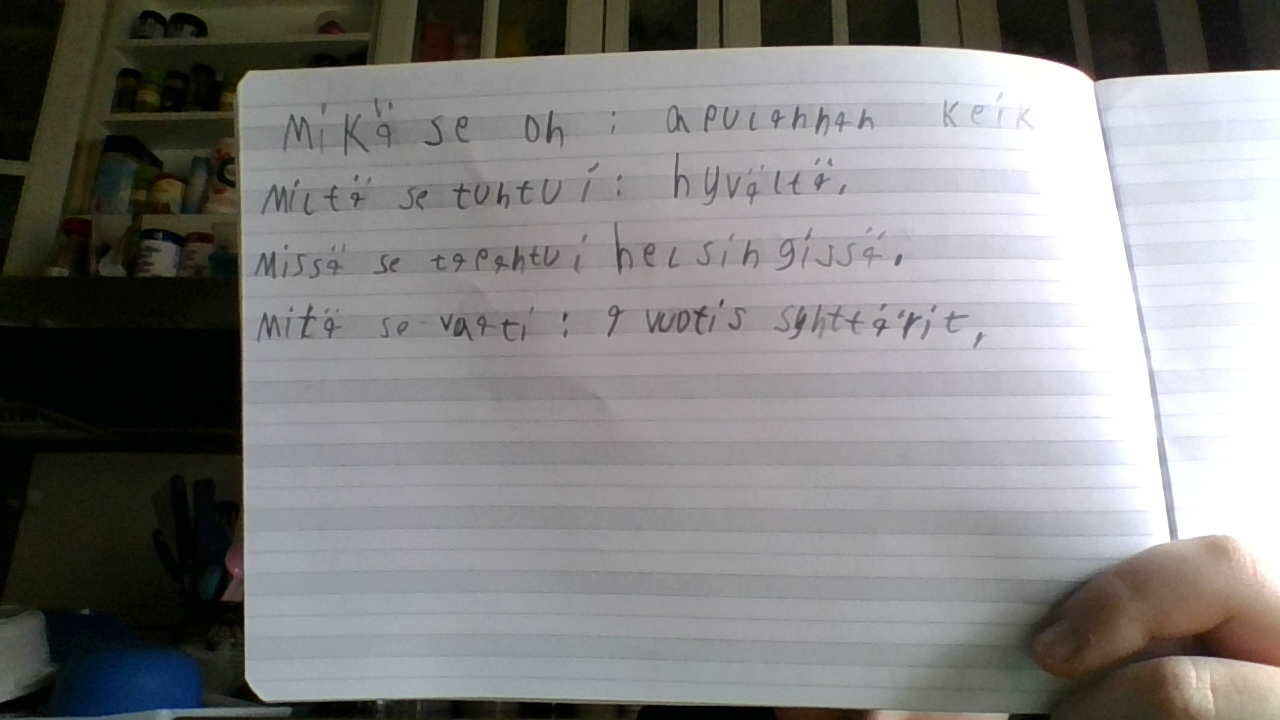 Mikä se on : apulannan keik
Miltä se tuntui : hyvältä.
Missä se tapahtui helsingissä.
Mitä se vaati : 9 vuotis synttärit,